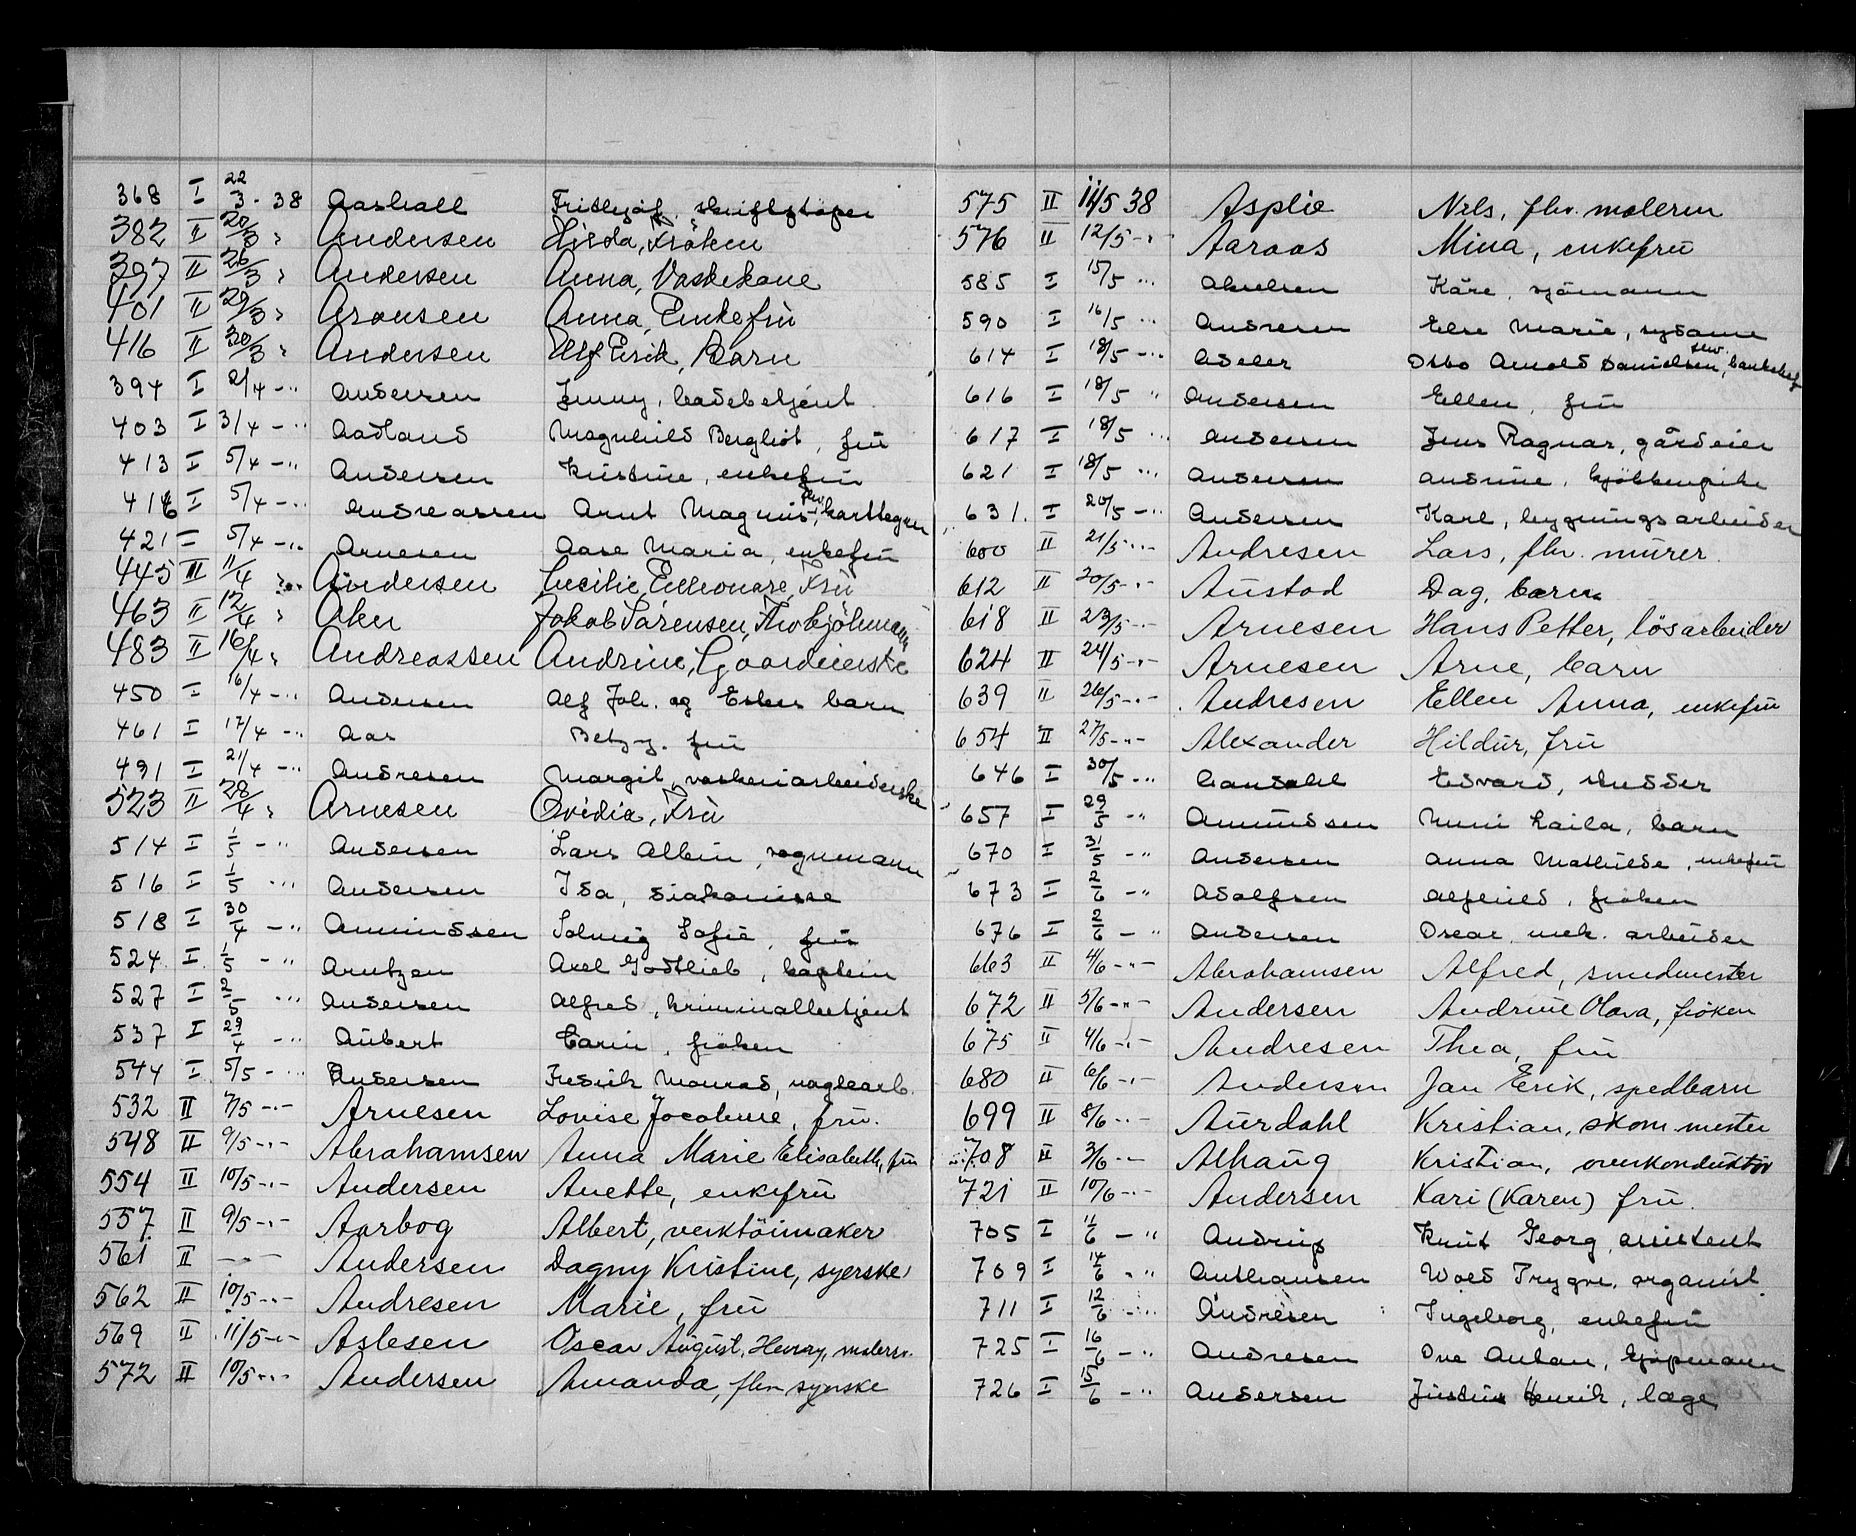 368 I 22/3 - 38 Aashall Fridtjof, skriftstøper
382 II 20/3 " Andersen Lisda, Frøken
397 II 26/3 " Andersen Anna, Vaskekone
401 II 29/3 " Aronsen Anna, Enkefru
416 II 30/3 " Andersen Alf Erik, Barn
394 I 2/4 -" Andersen Jenny, badebetjent
403 I 3/4 -" Aadland Magnhild Bergliot, fru
413 I 5/4 -" Andersen Kristine, enkefru
416 I 5/4 -" Andreassen Arnt Magnus, fhv. karttegner
421 I 5/4 -" Arnesen Aase Maria, enkefru
445 III 11/4 " Andersen Cecilie Elleonare, Fru
463 II 12/4 " Aker Jakob Sørensen, Fhv kjöbmann
483 II 16/4 " Andreassen Andrine, Gaardeierske
450 I 16/4 -" Andersen Alf Joh. og Esters barn
461 I 17/4 -" Aas Betzy, fru
491 I 21/4 -" Andresen Margit, vaskeriarbeiderske
523 II 28/4 " Arnesen Ovidia, Fru
514 I 1/5 -" Andersen Lars Albin, vognmann
516 I 1/5 -" Andersen Ida, diakonisse
518 I 30/4 -" Amundsen Solveig Sofie, fru
524 I 1/5 -" Arntzen Axel Godtlieb, kaptein
527 I 2/5 -" Andersen Alfred, kriminalbetjent
537 I 29/4 -" Aubert Carin, frøken
544 I 5/5 -" Andersen Fredrik Monrad, naglearb.
532 II 7/5 -"- Arnesen Lovise Jocobine, fru.
548 II 9/5 -"- Abrahamsen Anna Marie Elisabeth, fru
554 II 10/5 -"- Andersen Anette, enkefru
557 II 9/5 -"- Aarbog Albert, verktöimaker
561 II -"- Andersen Dagny Kristine, syerske
562 II 10/5 -"- Andresen Marie, fru
569 II 11/5 -"- Aslesen Oscar August, Henry, malersv.
572 II 10/5 -"- Andersen Amanda, fhv syerske
575 II 11/5 38 Asplie Nils, fhv. malerm
576 II 12/5 -"- Aaraas Mina, enkefru
585 I 15/5 -" Akselsen Kåre, sjömann
590 I 16/5 -" Andresen Else Marie, sydame
614 I 18/5 -" Adeler Otto Arnold Danielsen, fhv. banksjef
616 I 18/5 " Andersen Ellen, fru
617 I 18/5 -" Andersen Jens Ragnar, gårdeier
621 I 18/5 -" Andersen Andrine, kjøkkenpike
631. I 20/5 -" Andersen Karl, bygningsarbeider
600 II 21/5 -"- Andresen Lars, fhv. murer.
612 II 20/5 -"- Austad Dag, barn
618 II 23/5 -"- Arnesen Hans Petter, lösarbeider
624 II 24/5 -"- Arnesen Arne, barn
639 II 26/5 -"- Andresen Ellen Anna, enkefru
654 II 27/5 -"- Alexander Hildur, fru
646 I 30/5 -" Aamdahl Edvard, skredder
657 I 29/5 -" Amundsen Unni Laila, barn
670 I 31/5 -" Andersen Anna Mathilde, enkefru
673 I 2/6 -" Adolfsen Alfhild, frøken
676 I 2/6 -" Andersen Oscar, mek. arbeider
663 II 4/6 -"- Abrahamsen Alfred, smedmester
672 II 5/6 -"- Andersen Andrine Olava, fröken
675 II 4/6 -"- Andresen Thea, fru
680 II 6/6 -"- Andersen Jan Erik, spedbarn
699 II 8/6 -"- Aurdahl Kristian, skom. mester
708 II 3/6 -"- Alhaug Kristian, overkonduktör
721 II 10/6 -"- Andersen Kari (Karen) fru.
705 I 11/6 -" Andrup Knut Georg, assistent
709 I 14/6 -" Anthonsen Wold Trygve, organist.
711 I 12/6 -" Andresen Ingeborg, enkefru
725 I 16/6 -" Andresen Ove Anton, kjøpmann
726 I 15/6 -" Andersen Justus Henrik, læge